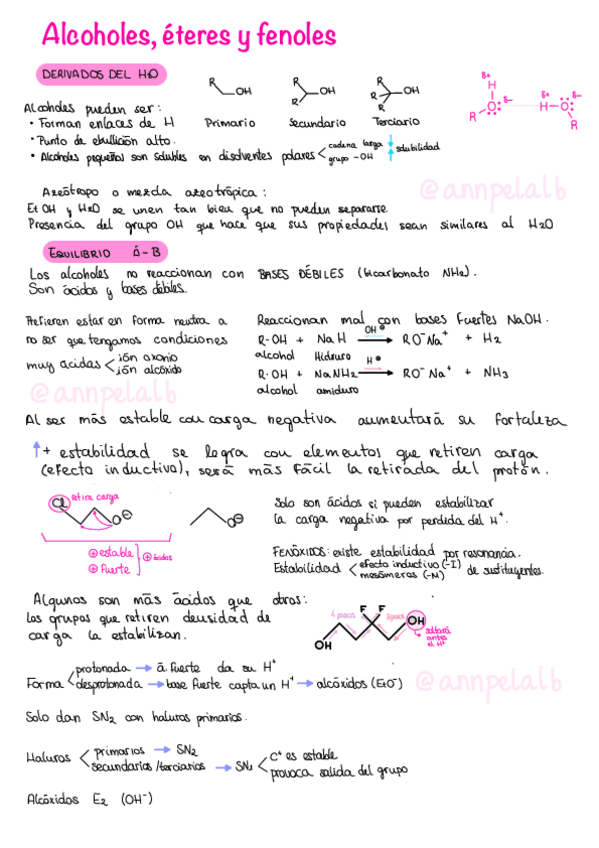 Alcoholes, éteres y fenoles
DERIVADOS DEL H2O
R OH R OH R OH
R' R' R''
Primario Secundario Terciario
δ+ H δ- R O δ+ H O δ- R
Alcoholes pueden ser:
• Forman enlaces de H
• Punto de ebullición alto.
• Alcoholes pequeños son solubles en disolventes polares < cadena larga ↓ solubilidad
grupo -OH ↑
@annpelalb
Azeótropo o mezcla azeotrópica:
Et OH y H2O se unen tan bien que no pueden separarse.
Presencia del grupo OH que hace que sus propiedades sean similares al H2O
EQUILIBRIO Á-B
Los alcoholes no reaccionan con BASES DÉBILES (bicarbonato NH3).
Son ácidos y bases débiles.
Prefieren estar en forma neutra a
no ser que tengamos condiciones
muy acidas < ión oxonio
ión alcóxido
@annpelalb
Reaccionan mal con bases fuertes NaOH.
R-OH + NaH OH⊖ → RO⁻Na⁺ + H2
alcohol Hidruro H⊕
R-OH + NaNH2 → RO⁻Na⁺ + NH3
alcohol amiduro
Al ser más estable con carga negativa aumentará su fortaleza
↑+ estabilidad se logra con elementos que retiren carga
(efecto inductivo), será más fácil la retirada del protón.
Cl retira carga
O⊖ O⊖
⊕ estable
⊕ fuerte } ⊕ ácidos
Solo son ácidos si pueden estabilizar
la carga negativa por perdida del H⁺.
FENÓXIDOS: existe estabilidad por resonancia.
Estabilidad < efecto inductivo (-I)
mesómeros (-M) de sustituyentes.
Algunos son más ácidos que otros:
los grupos que retiren densidad de
carga la estabilizan.
F F
OH OH
saltará
antes
el H⁺
Forma < protonada → á fuerte da su H⁺
desprotonada → base fuerte capta un H⁺ → alcóxidos (EtO⁻)
@annpelalb
Solo dan SN2 con haluros primarios.
Haluros < primarios → SN2
secundarios/terciarios → SN1 < C⁺ es estable
provoca salida del grupo
Alcóxidos E2 (OH⁻)